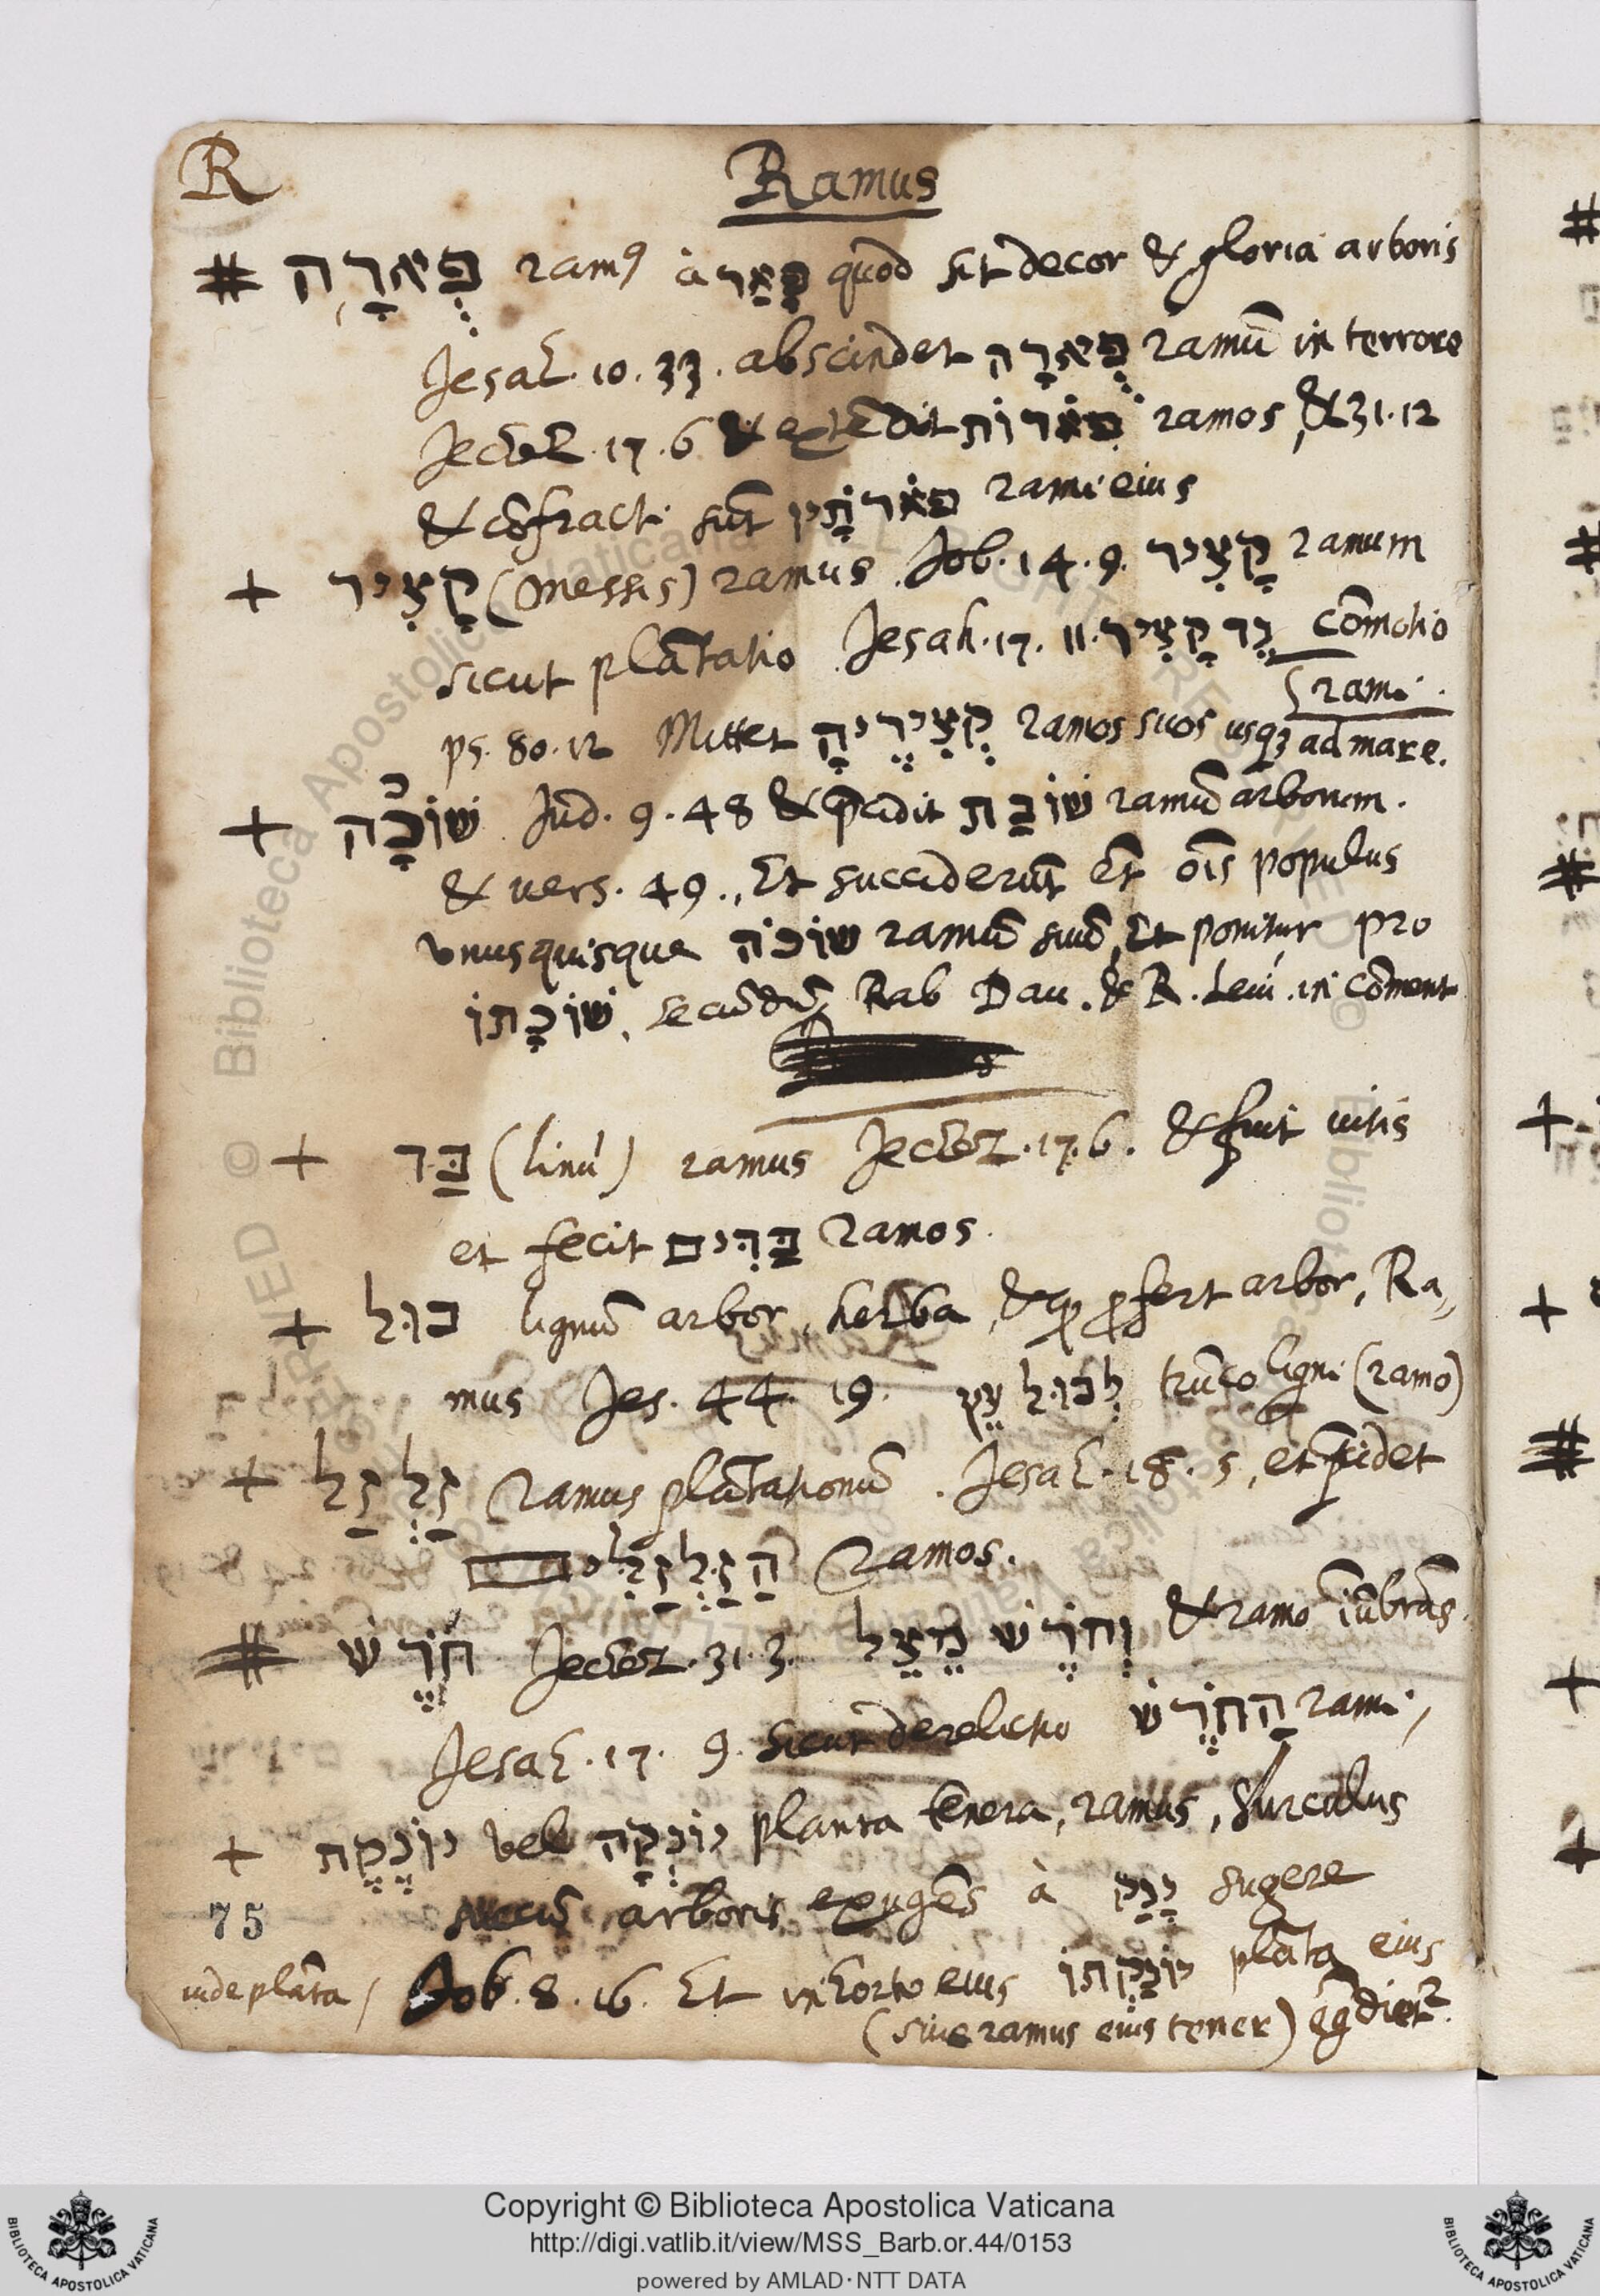 R
Ramus
# פֻארָה ramꝰ à פָּאַר quod sit decor & gloria arboris
Jesah. 10. 33. abscindet פֻּארָה ramū in terrore
Jechel. 17. 6 & extēdit פֹּארוֹת ramos, & 31. 12
& cōfracti sūt פֹּארֹתָיו rami eius
+ קָצִיר (messis) ramus Job. 14. 9. קָצִיר ramum
sicut plātatio Jesah. 17. 11. נֵד קָצִיר cōmotio
rami.
ps. 80. 12 Mittet קְצִירֶיהָ ramos suos usqꝫ ad mare.
+ שׂוֹכָּה Jud. 9. 48 & p̄cidit שׂוֹכַת ramū arborum.
& vers. 49. Et succiderūt ēt oīs populus
vnusquisque שׂוֹכֹה ramū suū, Et ponitur pro
שׂוֹכָתוֹ, secūdū Rab Dau. & R. Leui. in cōment
+ בַּד (linū) ramus Jechez. 17. 6. & fuit uitis
et fecit בַּדִּים ramos.
+ בוּל lignū arbor, herba, & qꝫ ꝓfert arbor, Ra-
mus Jes. 44. 19. לְבוּל עֵץ trūco ligni (ramo)
+ זַלְזַל ramus plātationū. Jesah. 18. 5, et p̄cidet
הַזַּלְזַלִּים ramos.
# חֹרֶשׁ Jechez. 31. 3. וְחֹרֶשׁ מֵצַל & ramo īūbrās.
Jesah. 17. 9. sicut derelictio הַחֹרֶשׁ rami,
+ יוֹנֶקֶת vel יוֹנְקָה planta tēnera, ramus, surculus
succū arboris exugēs à יָנַק sugere
75
inde plāta, Job. 8. 16. Et in horto eius יוֹנַקְתּוֹ plāta eius
(siue ramus eius tener) egrediet².
Copyright © Biblioteca Apostolica Vaticana
http://digi.vatlib.it/view/MSS_Barb.or.44/0153
powered by AMLAD·NTT DATA